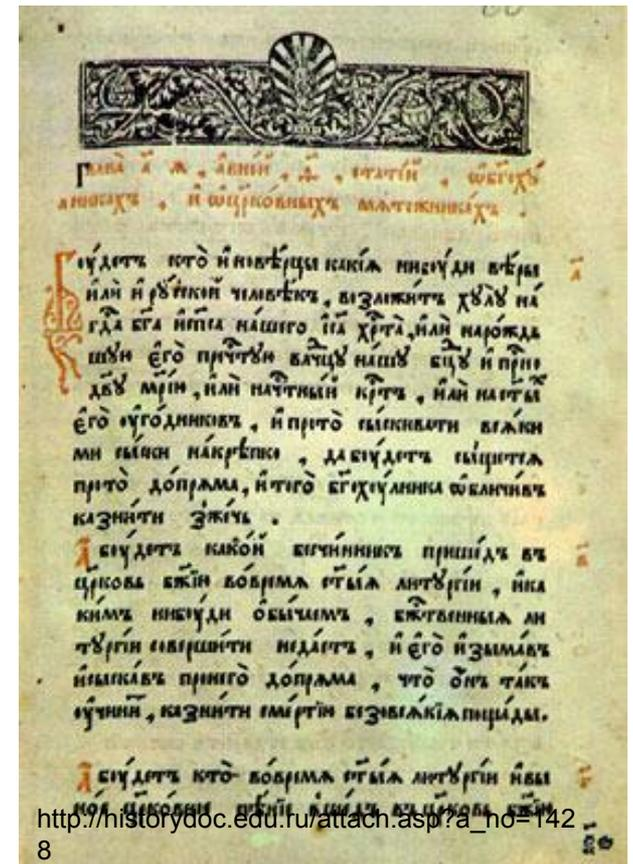 Глава а҃ я , авней , ѳ҃ , статей , ѡбг҃оху
лниках , и ѡцр҃ковных мятежниках .
Боудетъ кто̀ и҆нове́рцы какі́я нибу́ди ве́ры
и҆лѝ и҆ ру́ской человѣ́къ , возложи́тъ хулу̀ на́
гд҃а бг҃а и҆сп҃са на́шего і҆с҃а хр҃та̀ , и҆лѝ нарождь
шую є҆го̀ преч҃тую влⷣчцу на́шу бц҃у и҆ прⷭ҇но
дв҃у мр҃і́ю , и҆лѝ на ч҃тный кр҃тъ , и҆лѝ на ст҃ы́х
є҆го̀ оу҆го́дниковъ , и҆ прото̀ сы́скивати вся́ки
ми сы́ски на́крѣпко , да боу́детъ сы́щется
прото̀ до́пряма , и҆ того̀ бг҃охоу́лника ѡбличи́въ
казни́ти зже́чь .
А боу́детъ како́й безчи́нникъ прише́дъ въ
цр҃ковь бж҃ію во́время ст҃ы́я литургі́и , и҆ка
ки́мъ нибоу́ди ѻ҆бы́чаемъ , бжⷭ҇твенныя ли
тургі́и соверши́ти неда́стъ , и҆ є҆го̀ и҆зыма́въ
и҆сыска́въ пронего̀ до́пряма , что̀ ѻ҆́нъ та́къ
оу҆чини́т , казни́ти сме́ртію безовся́кія поща́ды .
А боу́детъ кто̀ во́время ст҃ы́я литургі́и и҆ вы
ное цр҃ковное пѣ́ніе вше́дъ въ цр҃ковь бж҃ію
http://historydoc.edu.ru/attach.asp?a_no=142
8